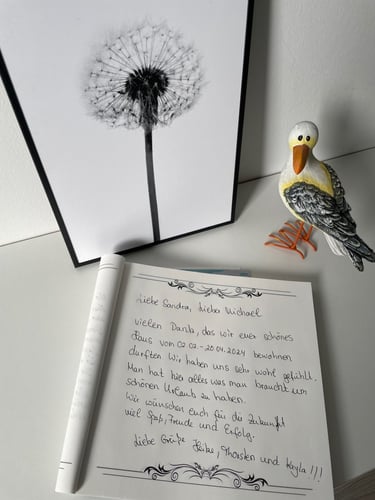 Liebe Sandra, lieber Michael
vielen Dank, das wir euer schönes
Haus vom 02.02.-20.04.2024 bewohnen
durften. Wir haben uns sehr wohl gefühlt.
Man hat hier alles was man braucht um
schönen Urlaub zu haben.
Wir wünschen euch für die Zukunft
viel Spaß, Freude und Erfolg.
Liebe Grüße Heike, Thorsten und Kayla !!!